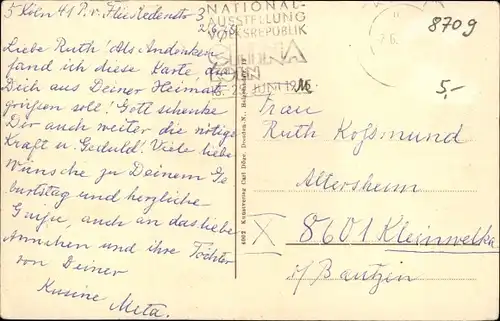 5 Köln 41 P. v. Redenstr 3
Liebe Ruth! Als Andenken
fand ich diese Karte, die
Dich aus Deiner Heimat
grüßen soll! Gott schenke
Dir auch weiter die nötige
Kraft u. Geduld! Viele liebe
Wünsche zu Deinem Ge
burtstag und herzliche
Grüße auch an das liebe
Annchen und ihre Töchter
von Deiner
Kusine Meta.
NATIONAL-
AUSSTELLUNG
VOLKSREPUBLIK
KÖLN
JUNI
8709
5,-
16
Frau
Ruth Kossmund
Altersheim
X 8601 Kleinwelka
i/Bautzen
Kunstverlag Carl Döge, Dresden-N.